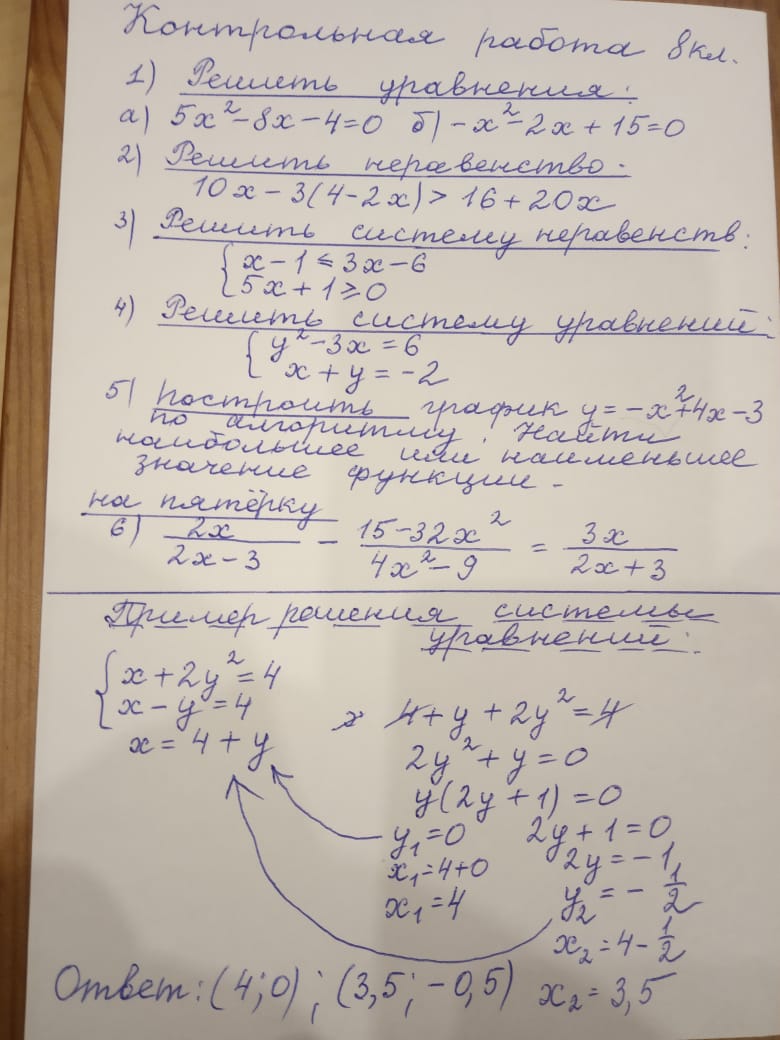 Контрольная работа 8кл.
1) Решить уравнения:
а) 5x²-8x-4=0 б) -x²-2x+15=0
2) Решить неравенство.
10x-3(4-2x)>16+20x
3) Решить систему неравенств:
{x-1≤3x-6
5x+1≥0
4) Решить систему уравнений:
{y²-3x=6
x+y=-2
5) Построить график y=-x²+4x-3
по алгоритму. Найти
наибольшее или наименьшее
значение функции.
на пятёрку
6) 2x/(2x-3) - (15-32x²)/(4x²-9) = 3x/(2x+3)
Пример решения системы
уравнений:
{x+2y²=4
x-y=4
x=4+y
4+y+2y²=4
2y²+y=0
y(2y+1)=0
y₁=0 2y+1=0
x₁=4+0 2y=-1
x₁=4 y₂=-1/2
x₂=4-1/2
Ответ: (4;0); (3,5; -0,5) x₂=3,5